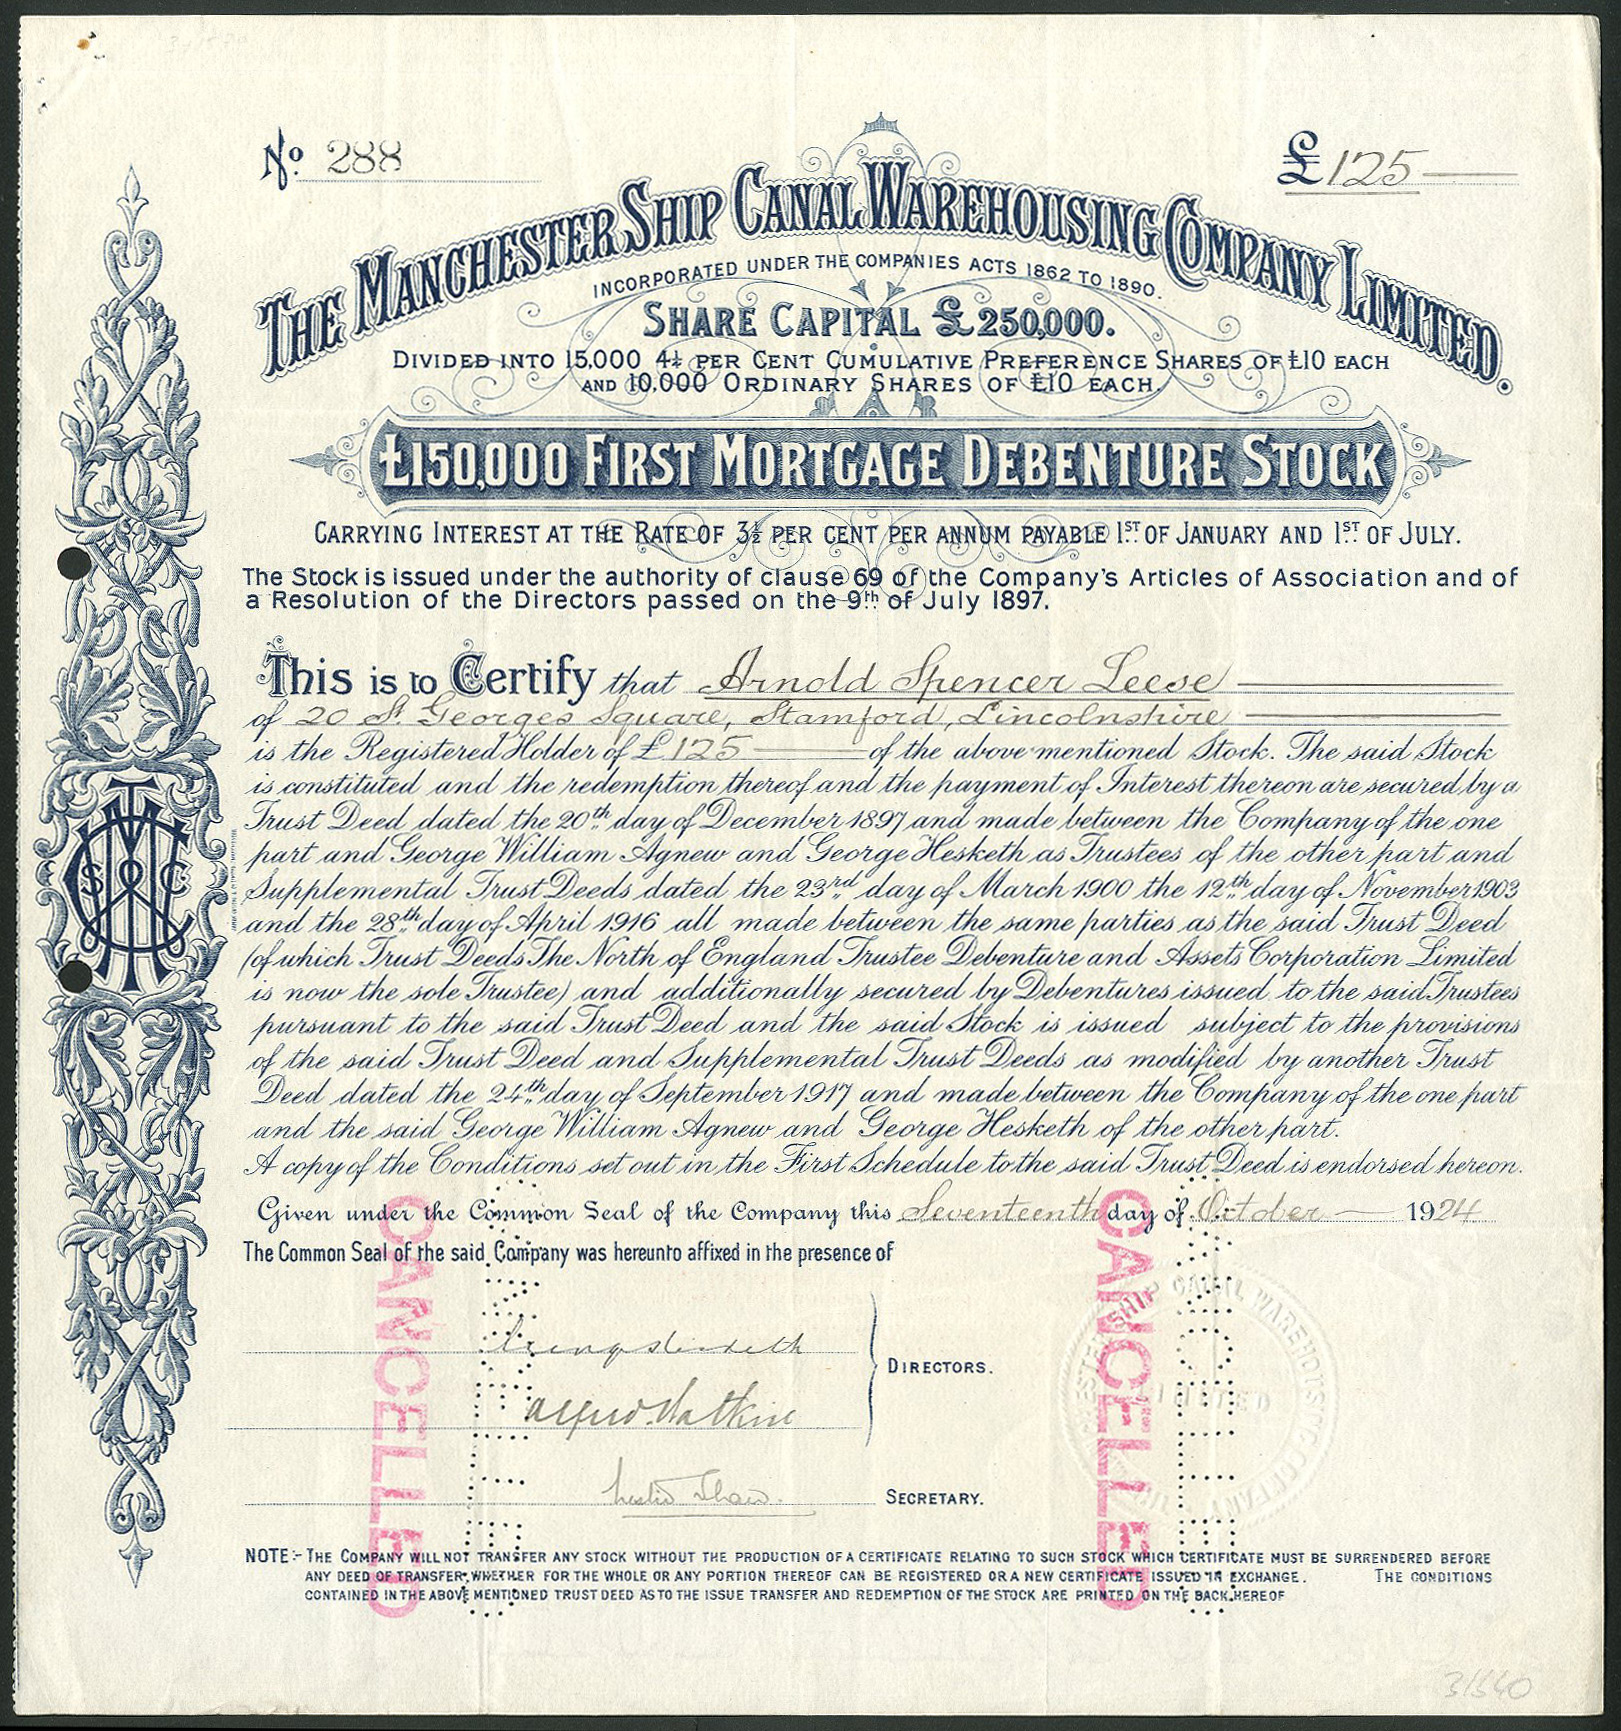 No. 288
£125
THE MANCHESTER SHIP CANAL WAREHOUSING COMPANY LIMITED.
INCORPORATED UNDER THE COMPANIES ACTS 1862 TO 1890.
SHARE CAPITAL £250,000.
DIVIDED INTO 15,000 4½ PER CENT CUMULATIVE PREFERENCE SHARES OF £10 EACH
AND 10,000 ORDINARY SHARES OF £10 EACH.
£150,000 FIRST MORTGAGE DEBENTURE STOCK
CARRYING INTEREST AT THE RATE OF 3½ PER CENT PER ANNUM PAYABLE 1ST. OF JANUARY AND 1ST. OF JULY.
The Stock is issued under the authority of clause 69 of the Company's Articles of Association and of
a Resolution of the Directors passed on the 9th. of July 1897.
This is to Certify that Arnold Spencer Leese
of 20 St. Georges Square, Stamford, Lincolnshire
is the Registered Holder of £125 of the above mentioned Stock. The said Stock
is constituted and the redemption thereof and the payment of Interest thereon are secured by a
Trust Deed dated the 20th. day of December 1897 and made between the Company of the one
part and George William Agnew and George Hesketh as Trustees of the other part and
Supplemental Trust Deeds dated the 23rd. day of March 1900 the 12th. day of November 1903
and the 28th. day of April 1916 all made between the same parties as the said Trust Deed
(of which Trust Deeds The North of England Trustee Debenture and Assets Corporation Limited
is now the sole Trustee) and additionally secured by Debentures issued to the said Trustees
pursuant to the said Trust Deed and the said Stock is issued subject to the provisions
of the said Trust Deed and Supplemental Trust Deeds as modified by another Trust
Deed dated the 24th. day of September 1917 and made between the Company of the one part
and the said George William Agnew and George Hesketh of the other part.
A copy of the Conditions set out in the First Schedule to the said Trust Deed is endorsed hereon.
Given under the Common Seal of the Company this Seventeenth day of October 1924
The Common Seal of the said Company was hereunto affixed in the presence of
CANCELLED
CANCELLED
DIRECTORS.
Alfred Watkin
SHIP CANAL WAREHOUSING COMPANY
LIMITED
Leslie Shaw.
SECRETARY.
NOTE:- THE COMPANY WILL NOT TRANSFER ANY STOCK WITHOUT THE PRODUCTION OF A CERTIFICATE RELATING TO SUCH STOCK WHICH CERTIFICATE MUST BE SURRENDERED BEFORE
ANY DEED OF TRANSFER, WHETHER FOR THE WHOLE OR ANY PORTION THEREOF CAN BE REGISTERED OR A NEW CERTIFICATE ISSUED IN EXCHANGE. THE CONDITIONS
CONTAINED IN THE ABOVE MENTIONED TRUST DEED AS TO THE ISSUE TRANSFER AND REDEMPTION OF THE STOCK ARE PRINTED ON THE BACK HEREOF